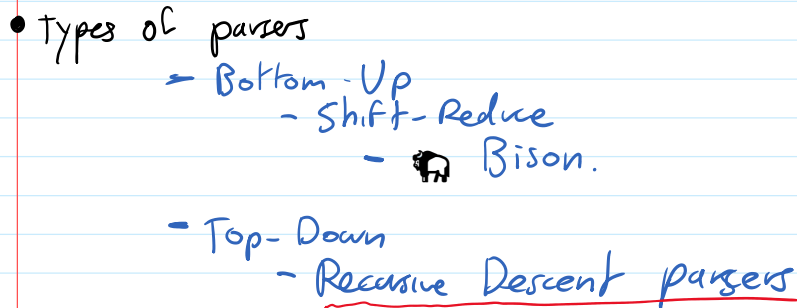 • Types of parsers
- Bottom-Up
- Shift-Reduce
- Bison.
- Top-Down
- Recursive Descent parsers